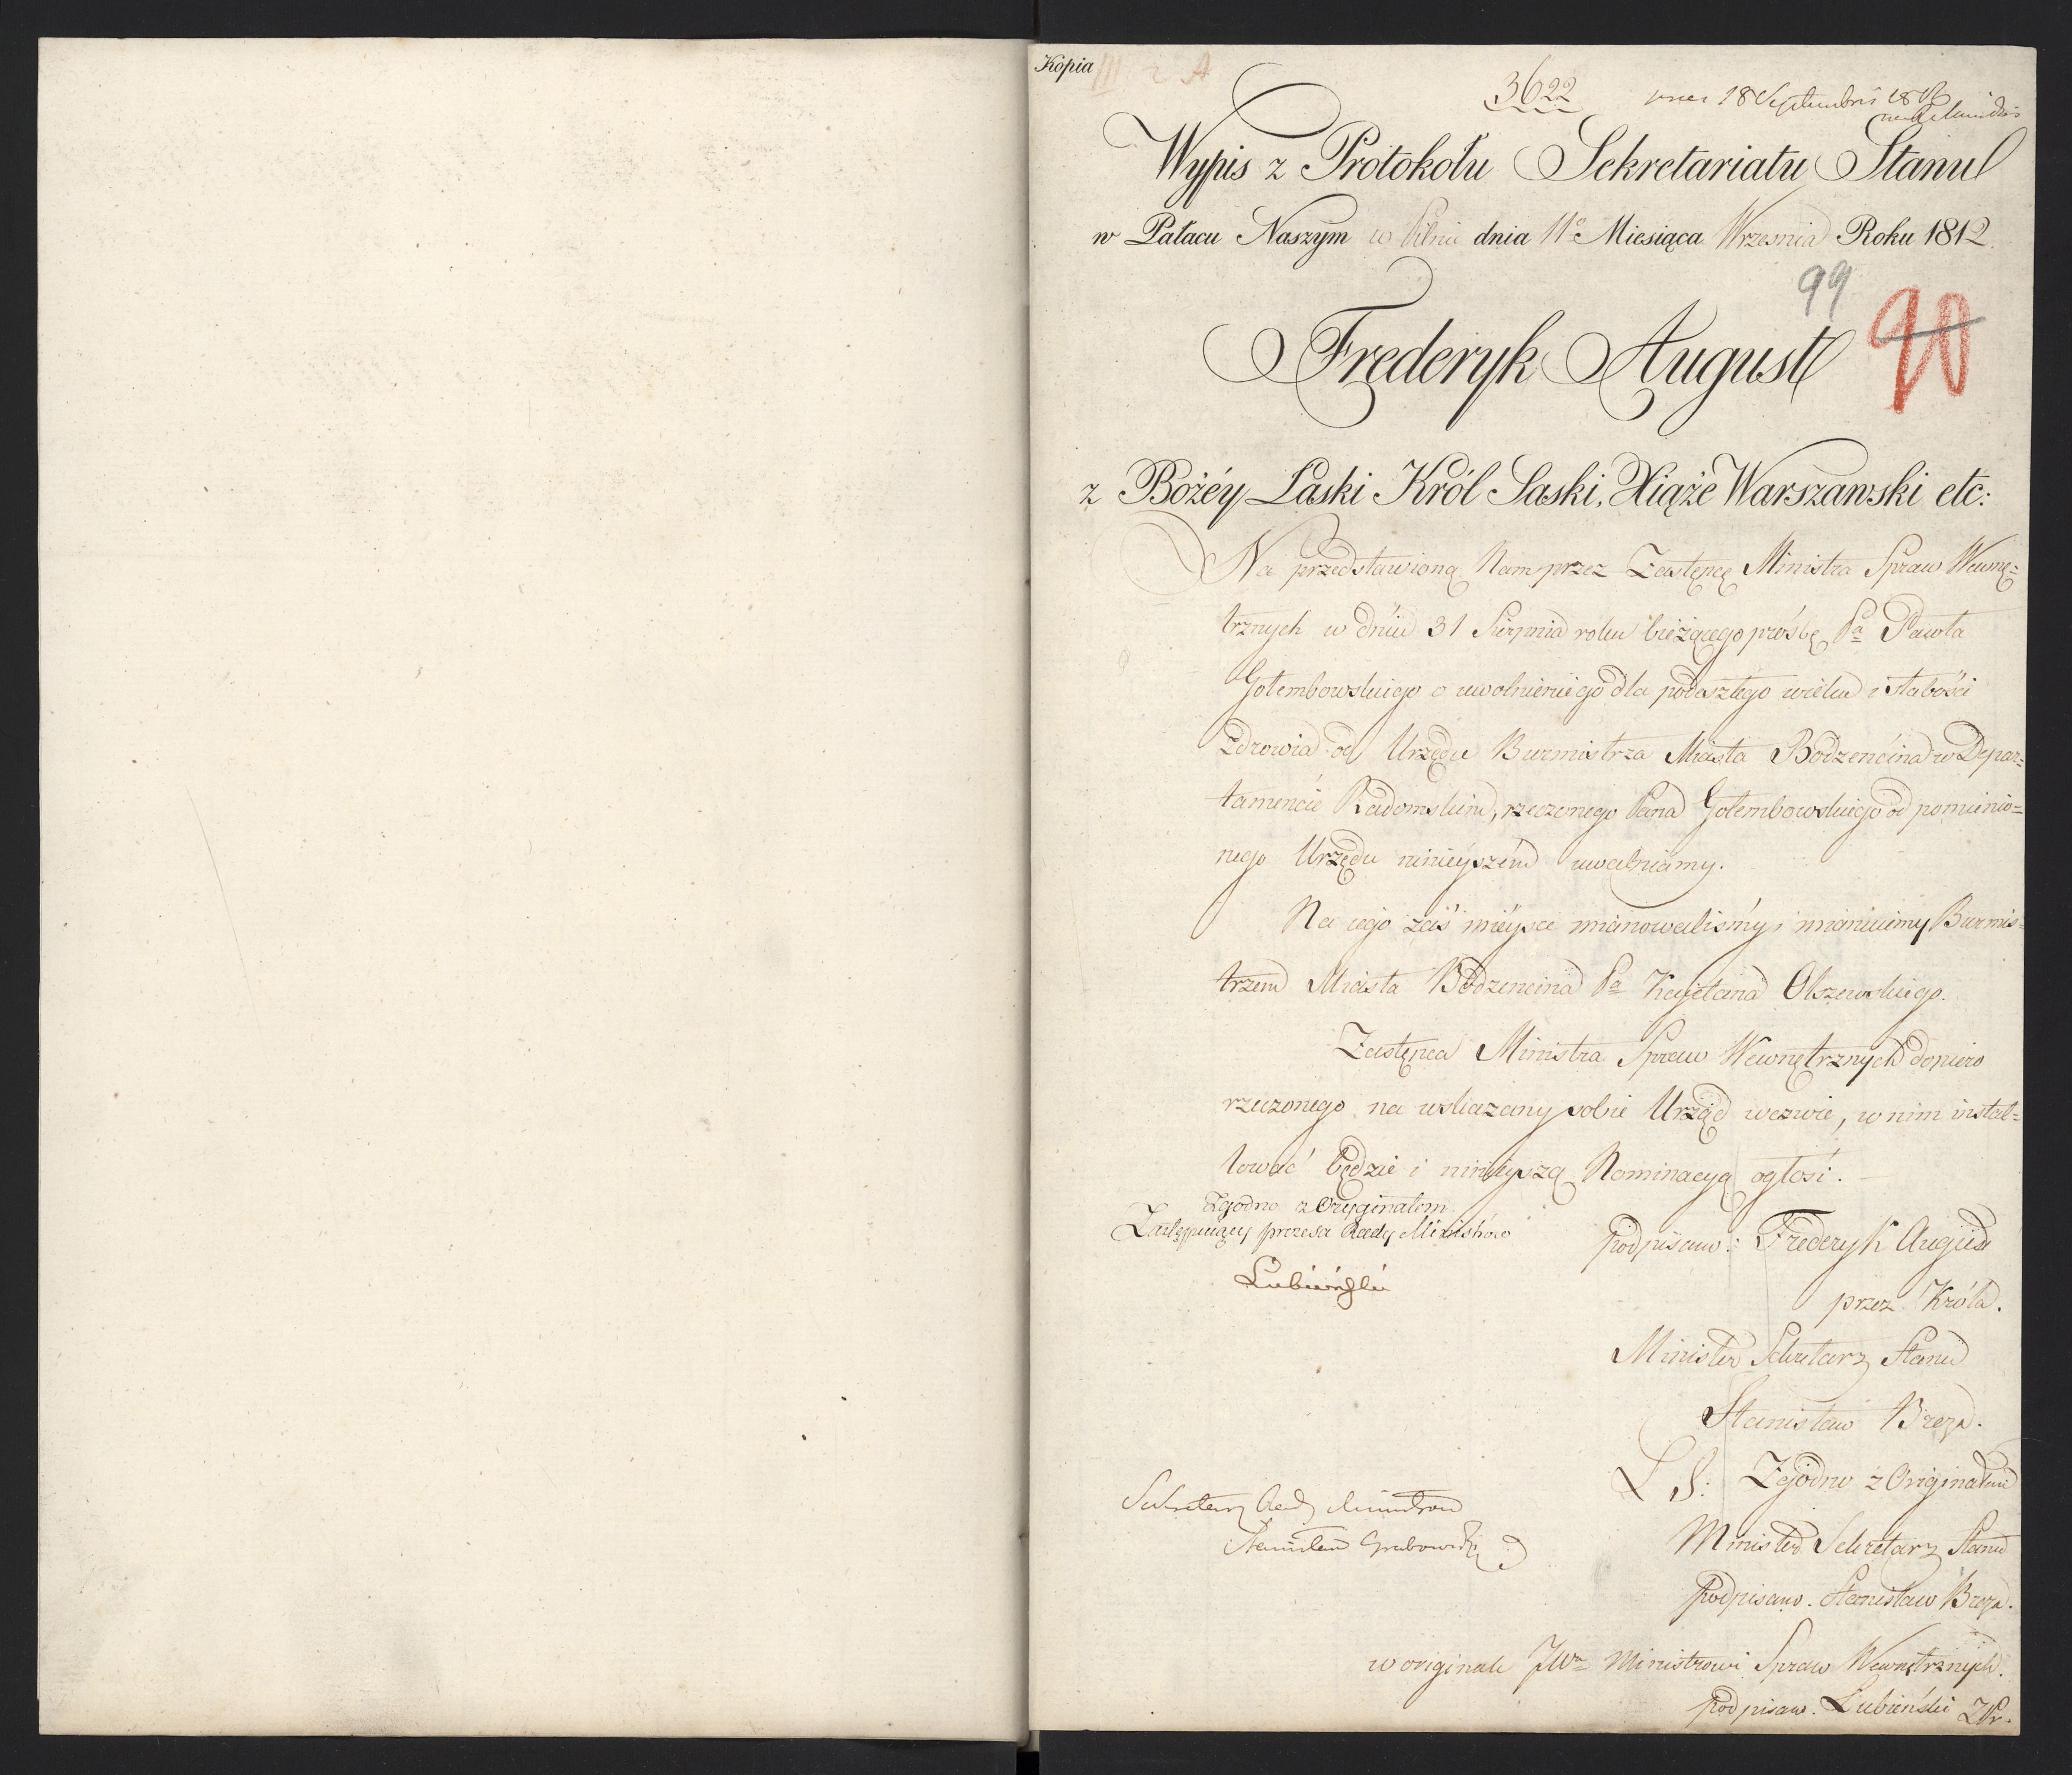 Kopia III 2 A
3622
18 Septembris
Wypis z Protokołu Sekretariatu Stanu
w Pałacu Naszym w Pilnie dnia 11º Miesiąca Wrzesnia Roku 1812.
99
90
Frederyk August
z Bożéy Łaski Król Saski, Xiąże Warszawski etc:
Na przedstawioną Nam przez Zastępcę Ministra Spraw Wewnę=
trznych w dniu 31 Sierpnia roku bieżącego prośbę Pa Pawła
Gołembowskiego o uwolnienie go dla podeszłego wieku i słabości
zdrowia od Urzędu Burmistrza Miasta Bodzencina w Depar=
tamencie Radomskim, rzeczonego Pana Gołembowskiego od pomienio=
nego Urzędu ninieyszém uwalniamy.
Na iego zaś mieysce mianowaliśmy i mianuiemy Burmis=
trzem Miasta Bodzencina Pa Kajetana Olszewskiego.
Zastępca Ministra Spraw Wewnętrznych dopiero
rzeczonego na wskazany sobie Urząd wezwie, w nim instal=
lować będzie i ninieyszą Nominacyą ogłosi.
Zgodno z Oryginałem
Zastępuiący prezesa Rady Ministrów
Lubieński
podpisano: Frederyk August
przez Króla.
Minister Sekretarz Stanu
Stanisław Breza.
L S: Zgodno z Originałem
Minister Sekretarz Stanu
podpisano. Stanisław Breza.
Sekretarz Rady Ministrow
Stanisław Grabowski
w originale JWu Ministrowi Spraw Wewnętrznych.
podpisano. Lubieński ZPr.